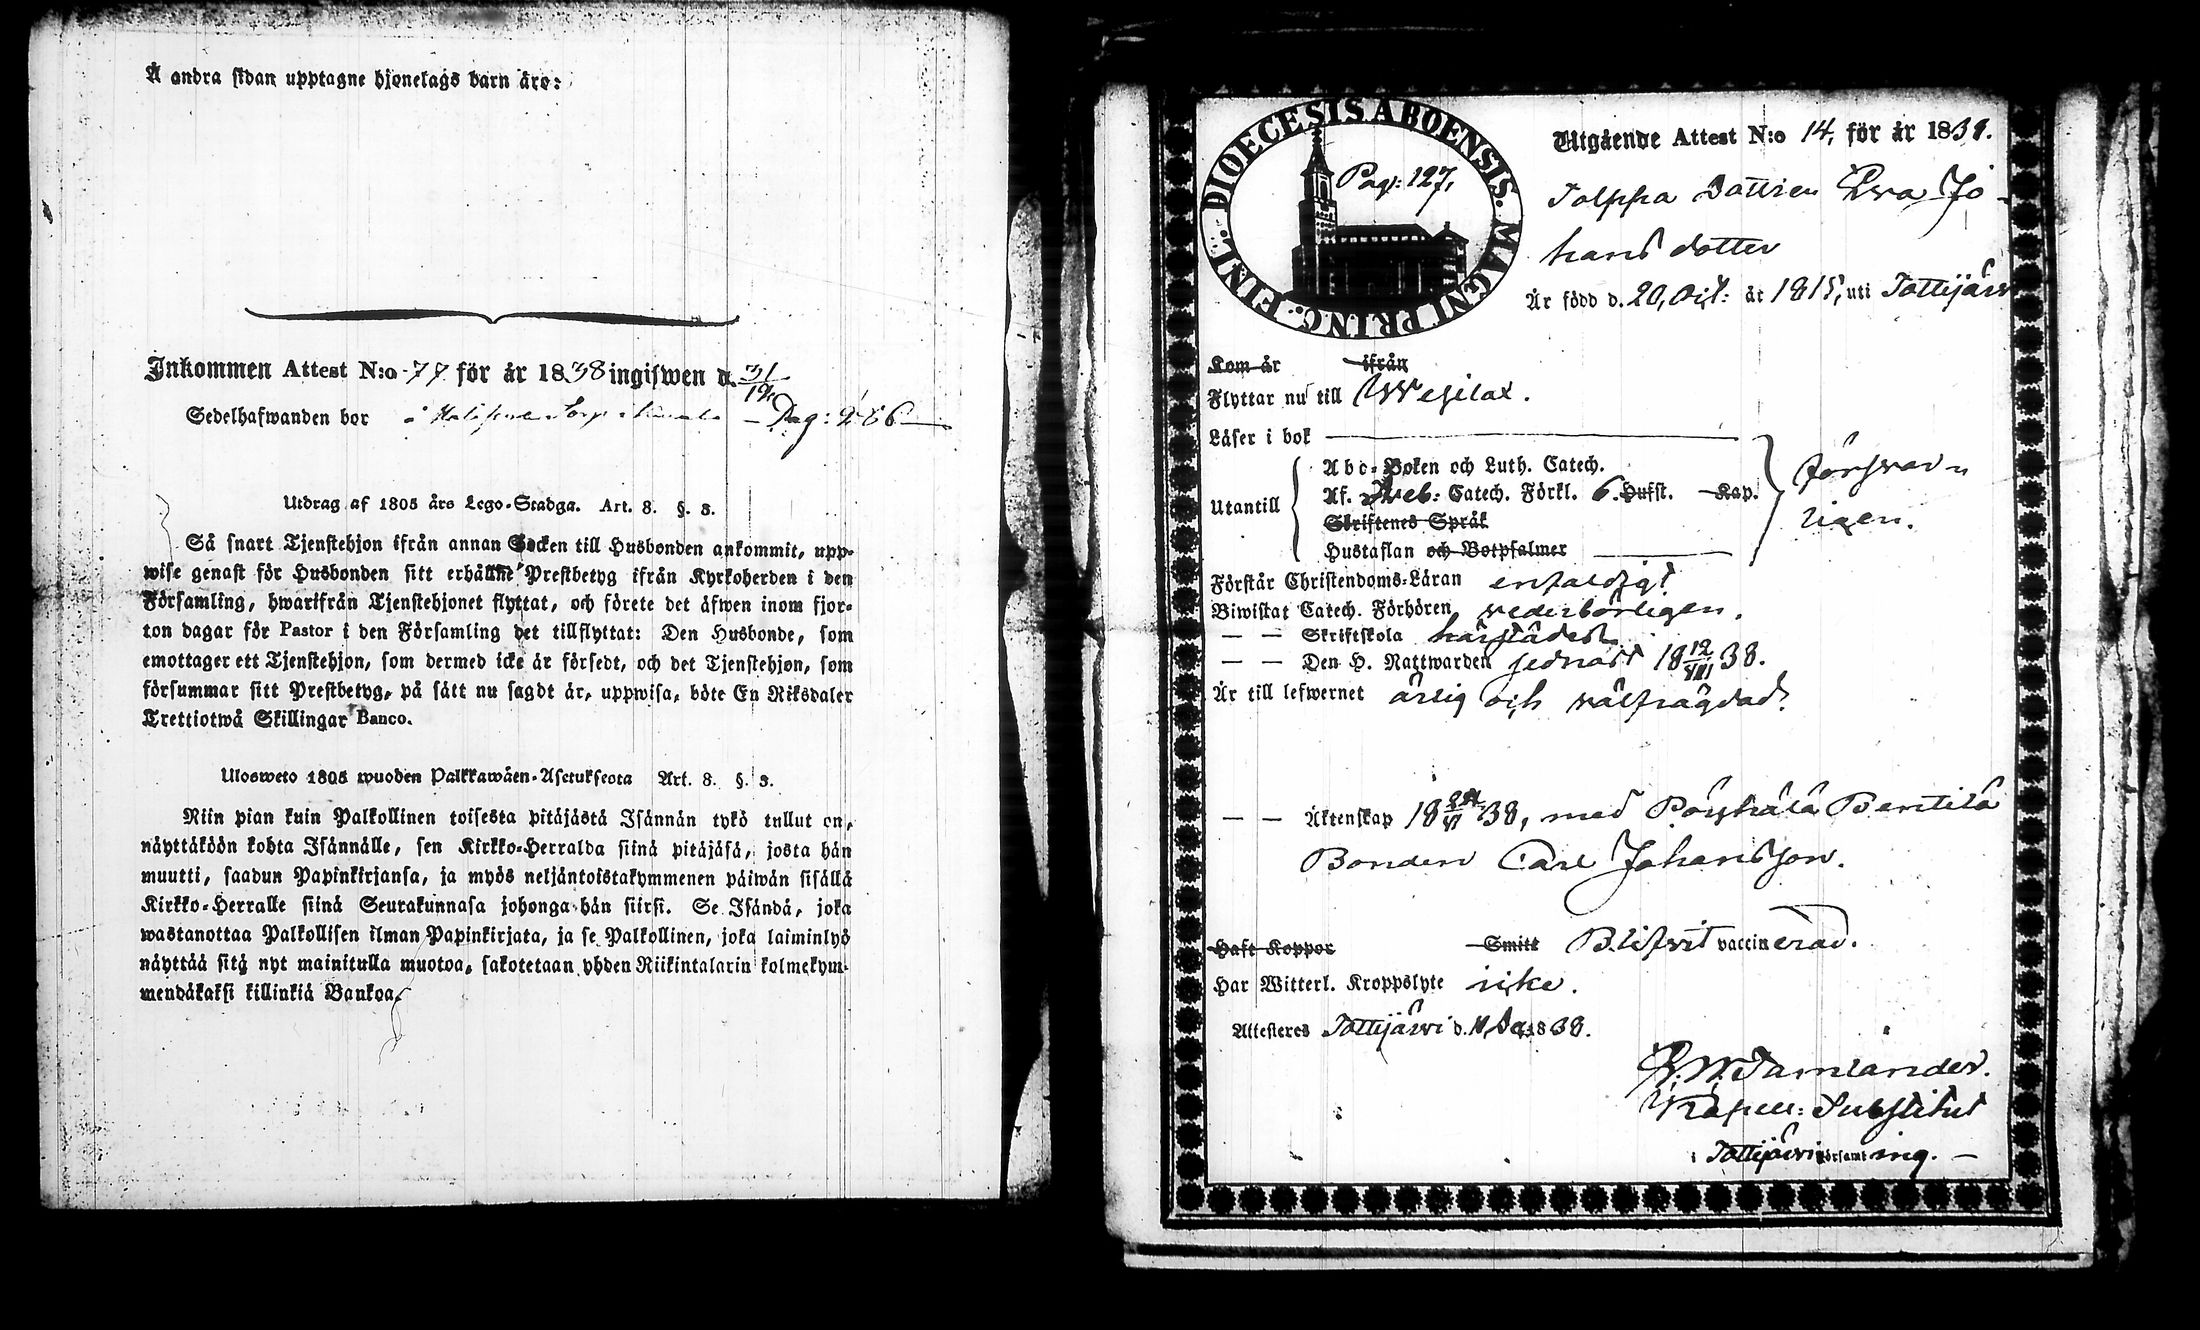 Å andra sidan upptagne hjonelags barn äro:
Inkommen Attest N:o 77 för år 1838 ingifwen d. 31/12
Sedelhafwanden bor i — Pag: 286 —
Utdrag af 1805 års Lego-Stadga. Art. 8. §. 3.
Så snart Tjenstehjon ifrån annan Socken till Husbonden ankommit, upp-
wise genast för Husbonden sitt erhållne Prestbetyg ifrån Kyrkoherden i den
Församling, hwarifrån Tjenstehjonet flyttat, och förete det äfwen inom fjor-
ton dagar för Pastor i den Församling det tillflyttat: Den Husbonde, som
emottager ett Tjenstehjon, som dermed icke är försedt, och det Tjenstehjon, som
försummar sitt Prestbetyg, på sätt nu sagdt är, uppwisa, böte En Riksdaler
Trettiotwå Skillingar Banco.
Ulosweto 1805 wuoden Palkkawäen-Asetuksesta Art. 8. §. 3.
Niin pian kuin Palkollinen toisesta pitäjästä Isännän tykö tullut on,
näyttäköön kohta Isännälle, sen Kirkko-Herralda siinä pitäjäsä, josta hän
muutti, saadun Papinkirjansa, ja myös neljäntoistakymmenen päiwän sisällä
Kirkko-Herralle siinä Seurakunnasa johonga hän siirsi. Se Isändä, joka
wastanottaa Palkollisen ilman Papinkirjata, ja se Palkollinen, joka laiminlyö
näyttää sitä nyt mainitulla muotoa, sakotetaan yhden Riikintalarin kolmekym-
mendäkaksi killinkiä Bankoa.
DIOECESIS ABOENSIS. MAGNI PRINC. FINL.
Pag: 127,
Utgående Attest N:o 14, för år 1838.
Tolppa Dottren Ewa Jo-
hans dotter
Är född d. 20, Oct: år 1815, uti Tottijärwi
Kom år ifrån
Flyttar nu till Wesilax.
Läser i bok
Utantill
Abc-Boken och Luth. Catech.
Af. Sveb: Catech. Förkl. 6. Hufst. Kap.
Skriftenes Språk
Hustaflan och Botpsalmer
försvar-
ligen.
Förstår Christendoms-Läran enfaldigt
Biwistat Catech. Förhören wederbörligen.
— — Skriftskola härstädes
— — Den H. Nattwarden sednast 18 12/VIII 38.
Är till lefwernet ärlig och wälfrägdad.
— — Äktenskap 18 24/VI 38, med Pöyhälä Benttilä
Bonden Carl Johansson.
Haft Koppor Smitt Blifvit vaccinerad.
Har Witterl. Kroppslyte icke.
Attesteres Tottijärwi d. 11, Dec. 1838.
Tamlander.
Kapell: Substitut
i Tottijärwi församling. —